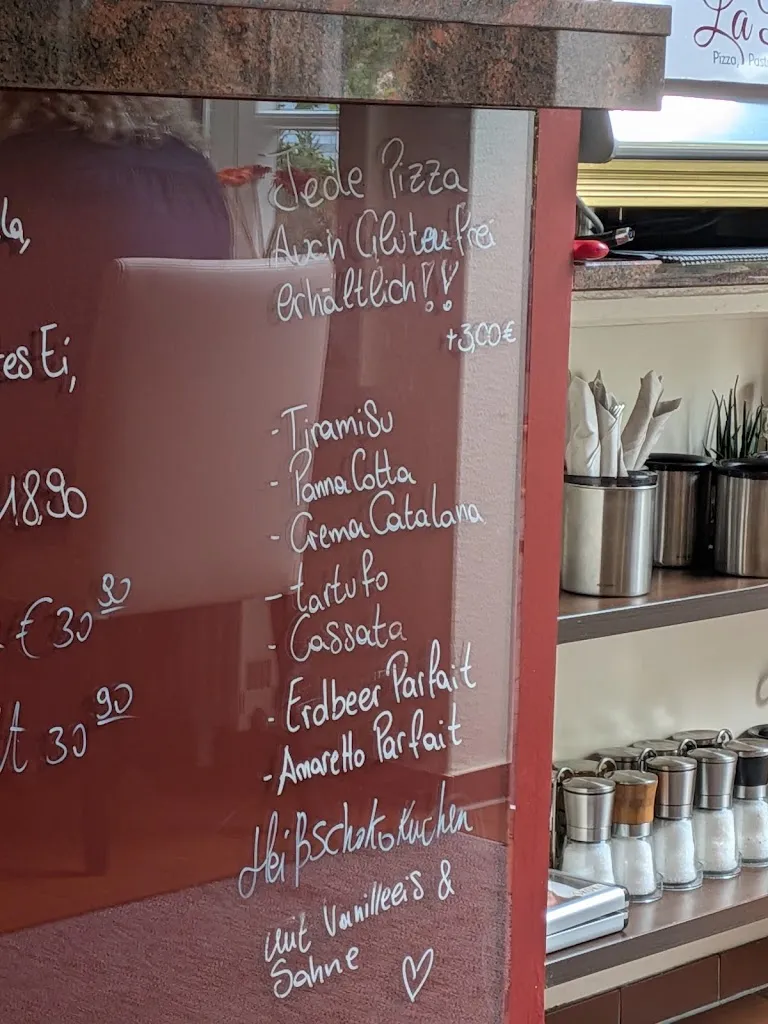 La
Pizza,
Jede Pizza
Auch Glutenfrei
erhältlich!!
+3,00€
es Ei,
- TiramiSu
- Panna Cotta
18,90
- Crema Catalana
- tartufo
€ 30 90
- Cassata
- Erdbeer Parfait
30 90
- Amaretto Parfait
Heißschokokuchen
mit Vanilleeis &
Sahne ♡